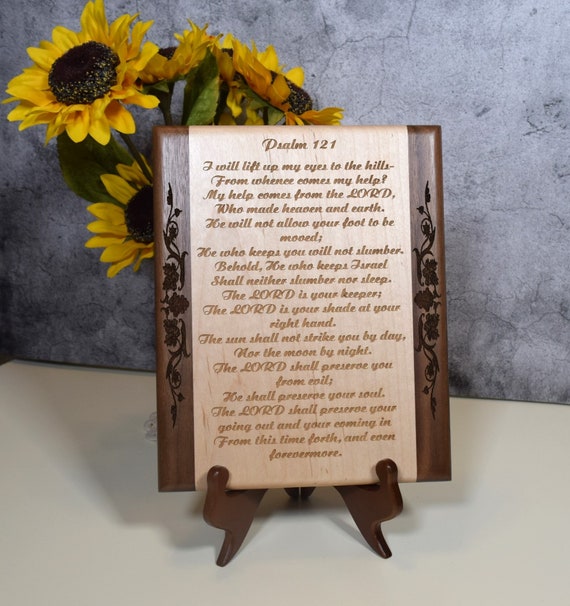 Psalm 121
I will lift up my eyes to the hills-
From whence comes my help?
My help comes from the LORD,
Who made heaven and earth.
He will not allow your foot to be
moved;
He who keeps you will not slumber.
Behold, He who keeps Israel
Shall neither slumber nor sleep.
The LORD is your keeper;
The LORD is your shade at your
right hand.
The sun shall not strike you by day,
Nor the moon by night.
The LORD shall preserve you
from evil;
He shall preserve your soul.
The LORD shall preserve your
going out and your coming in
From this time forth, and even
forevermore.